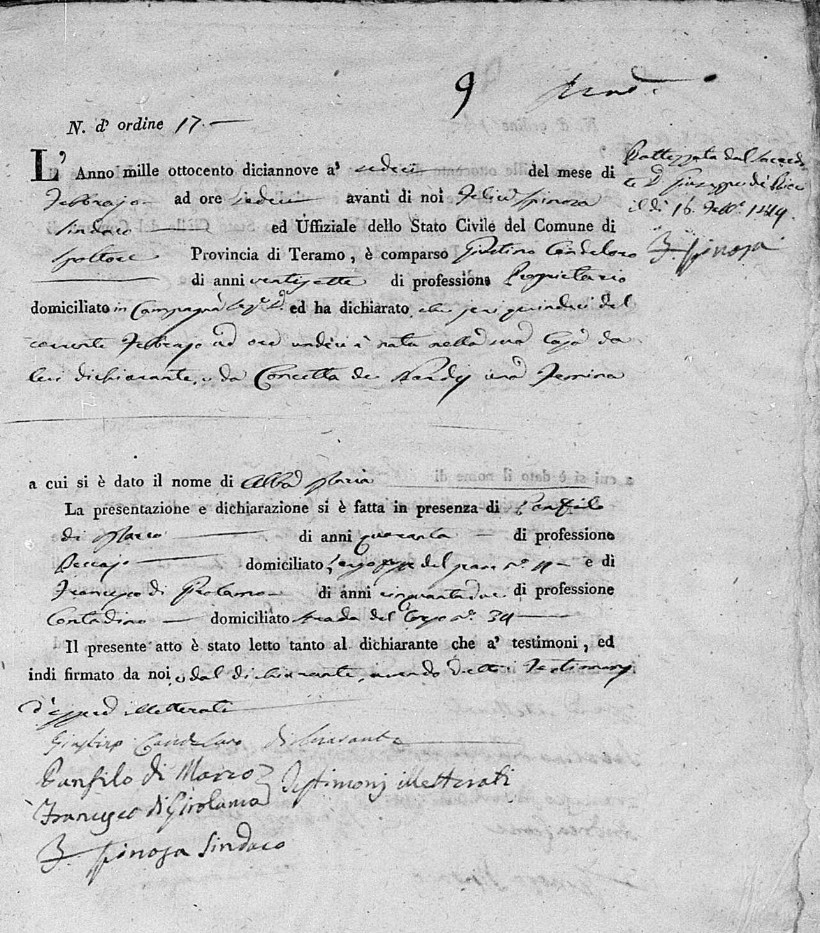 9
N. d' ordine 17.
L' Anno mille ottocento diciannove a' sedici del mese di
Febbrajo ad ore sedici avanti di noi Felice Spinosa
Sindaco ed Uffiziale dello Stato Civile del Comune di
Spoltore Provincia di Teramo, è comparso Giustino Candeloro
di anni ventisette di professione Proprietario
domiciliato in Campagna ed ha dichiarato, che jeri quindici del
corrente Febbrajo ad ore undici è nata nella sua Casa da
lui dichiarante, e da Concetta de una Femina
a cui si è dato il nome di Alba Maria
La presentazione e dichiarazione si è fatta in presenza di Panfilo
di Marco di anni quaranta di professione
Beccajo domiciliato del n.° e di
Francesco di Girolamo di anni cinquantadue di professione
Contadino domiciliato strada del n.° 34
Il presente atto è stato letto tanto al dichiarante che a' testimoni, ed
indi firmato da noi, e dal dichiarante, avendo detto i Testimonj
d'essere illetterati
Giustino Candeloro dichiarante
Panfilo di Marco
Francesco di Girolamo Testimonj illetterati
F. Spinosa Sindaco
Battezzata dal Sacerdo
te D. Giuseppe de
il dì 16. Febb.° 1819.
F. Spinosa